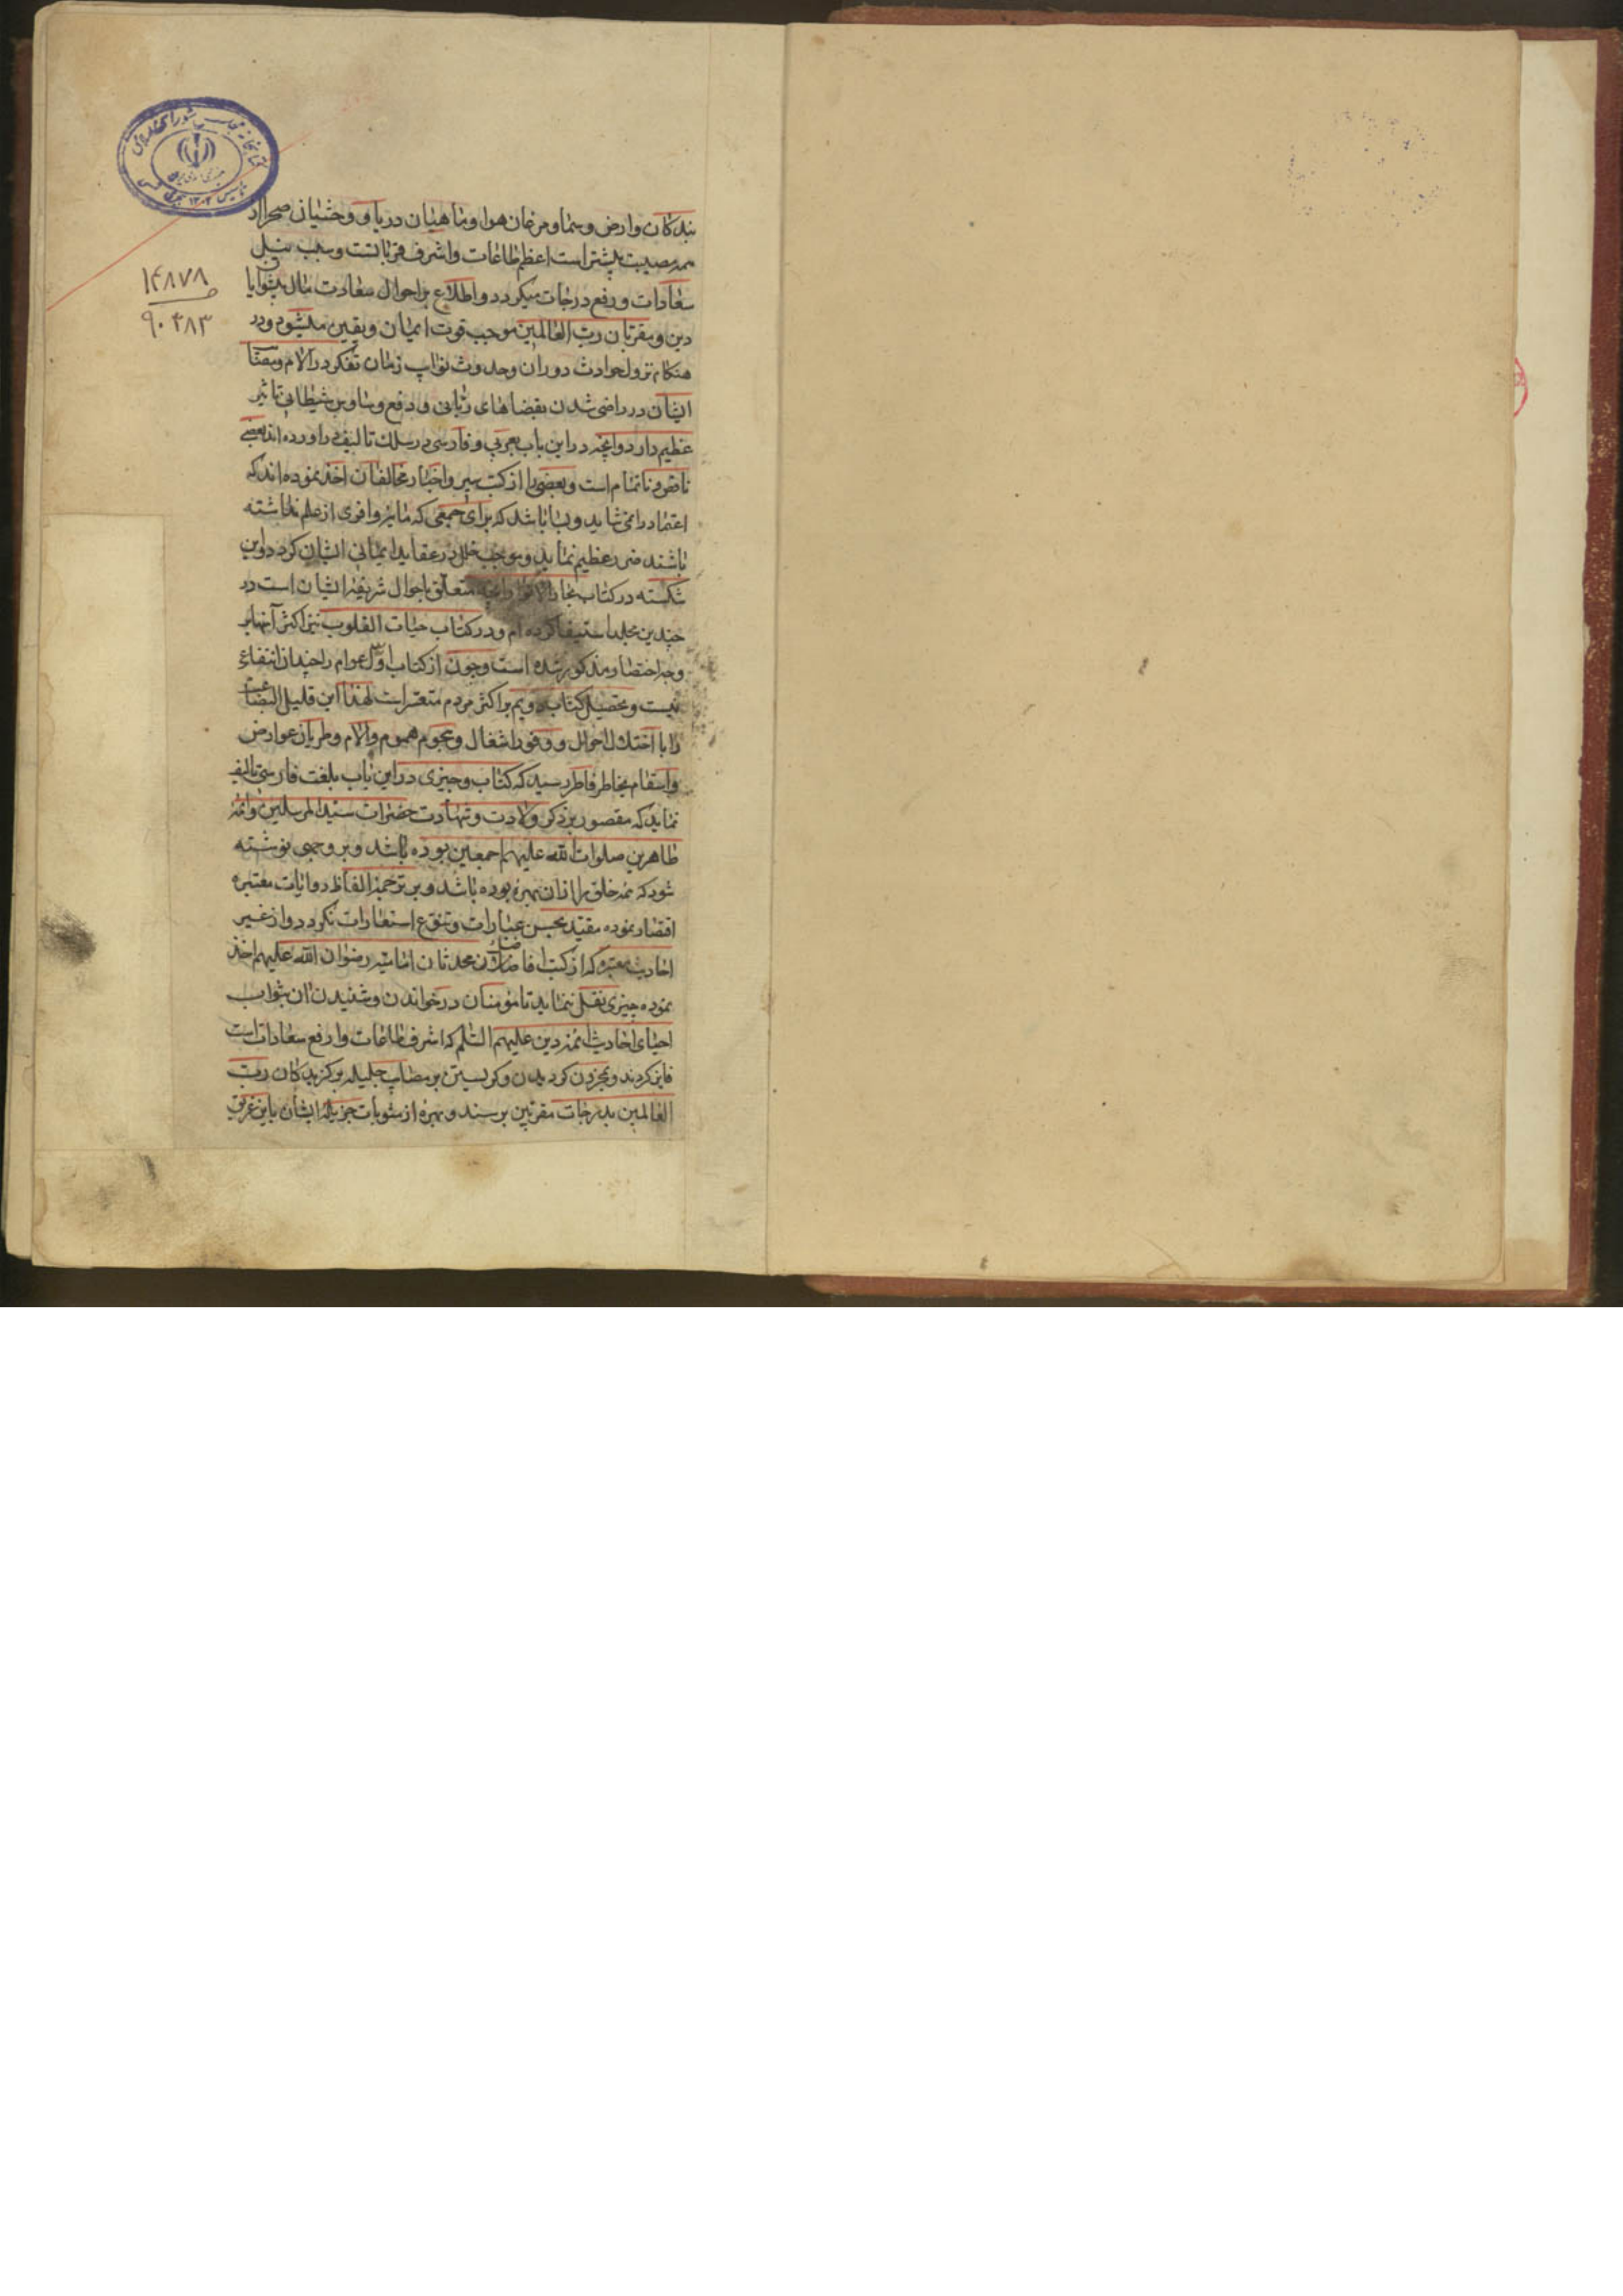 بندكان وارض وسما ومرغان هوا وماهيان دريا و وحشيان صحرا از
همه مصيبت بيشتر است اعظم طاعات واشرف قرباتست وسبب نيل
سعادات ورفع درجات ميكردد واطلاع بر احوال سعادت مال پيشوايان
دين ومقربان رب العالمين موجب قوت ايمان ويقين ميشود ودر
هنكام نزول حوادث دوران وحدوث نوايب زمان تفكر در آلام ومصائب
ايشان در راضى شدن بقضاهاى ربانى و دفع وساوس شيطانى تاثير
عظيم دارد وانچه در اين باب بعربى وفارسى در سلك تاليف دراورده اند بعضى
ناقص وناتمام است وبعضى را از كتب سير واخبار مخالفان اخذ نموده اند كه
اعتماد را نمى شايد وبسا باشد كه براى جمعى كه مايه وافرى از علم نداشته
باشند ضرر عظيم نمايد وموجب خلل در عقايد ايمانى ايشان كردد واين
شكسته در كتاب بحار الانوار انچه متعلق باحوال شريفه ايشان است در
چندين مجلد استيفا كرده ام ودر كتاب حيات القلوب نيز اكثر آنها بر
وجه اختصار مذكور شده است وچون از كتاب اول عوام را چندان انتفاع
نيست وتحصيل كتاب دويم بر اكثر مردم متعسر است لهذا اين قليل البضاعت
را با اختلال احوال و وفور اشغال وهجوم هموم وآلام وطريان عوارض
واسقام بخاطر فاطر رسيد كه كتاب وجيزى در اين باب بلغت فارسى تاليف
نمايد كه مقصور بر ذكر ولادت وشهادت حضرات سيد المرسلين وائمه
طاهرين صلوات الله عليهم اجمعين بوده باشد وبر وجهى نوشته
شود كه همه خلق را از ان بهره بوده باشد وبر ترجمه الفاظ روايات معتبره
اقتصار نموده مقيد بحسن عبارات وتنوع استعارات نكردد واز غير
احاديث معتبره كه از كتب افاضل محدثان اماميه رضوان الله عليهم اخذ
نموده چيزى نقل ننمايد تا مؤمنان در خواندن وشنيدن ان بثواب
احياى احاديث ائمه دين عليهم السلم كه اشرف طاعات وارفع سعادات است
فايز كردند وبمحزون كرديدن وكريستن بر مصائب جليله بركزيدكان رب
العالمين بدرجات مقربين برسند وبهره از مثوبات جزيله ايشان باين غريق
۱۴۸۷۸
۹۰۴۸۳